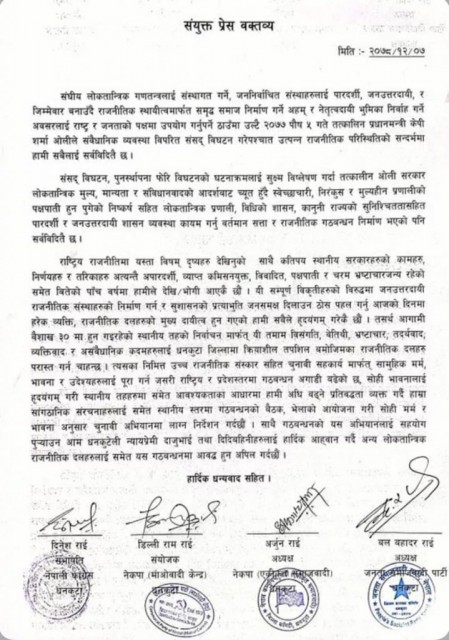 संयुक्त प्रेस वक्तव्य
मिति :- २०७८/१२/०७
संघीय लोकतान्त्रिक गणतन्त्रलाई संस्थागत गर्ने, जननिर्वाचित संस्थाहरुलाई पारदर्शी, जनउत्तरदायी, र
जिम्मेवार बनाउँदै राजनीतिक स्थायीत्वमार्फत समृद्ध समाज निर्माण गर्ने अहम् र नेतृत्वदायी भुमिका निर्वाह गर्ने
अवसरलाई राष्ट्र र जनताको पक्षमा उपयोग गर्नुपर्ने ठाउँमा उल्टै २०७७ पौष ५ गते तत्कालिन प्रधानमन्त्री केपी
शर्मा ओलीले संबैधानिक व्यवस्था विपरित संसद् विघटन गरेपश्चात उत्पन्न राजनीतिक परिस्थितिको सन्दर्भमा
हामी सबैलाई सर्वविदितै छ ।
संसद् विघटन, पुनर्स्थापना फेरि विघटनको घटनाक्रमलाई सुक्ष्म विश्लेषण गर्दा तत्कालीन ओली सरकार
लोकतान्त्रिक मुल्य, मान्यता र संविधानवादको आदर्शबाट च्यूत हुँदै स्वेच्छाचारी, निरंकुस र मुल्यहीन प्रणालीको
पक्षपाती हुन पुगेको निष्कर्ष सहित लोकतान्त्रिक प्रणाली, विधिको शासन, कानुनी राज्यको सुनिश्चिततासहित
पारदर्शी र जनउत्तरदायी शासन व्यवस्था कायम गर्नु वर्तमान सत्ता र राजनीतिक गठबन्धन निर्माण भएको पनि
सर्वविदितै छ ।
राष्ट्रिय राजनीतिमा यस्ता विषम् दृष्यहरु देखिनुको साथै कतिपय स्थानीय सरकारहरुको कामहरु,
निर्णयहरु र तरिकाहरु अत्यन्तै अपारदर्शी, व्याप्त कमिसनयुक्त, विवादित, पक्षपाती र चरम भ्रष्टाचारजन्य रहेको
समेत बितेको पाँच वर्षमा हामीले देखि/भोगी आएकै छौं । यी सम्पूर्ण विकृतीहरुको विरुद्धमा जनउत्तरदायी
राजनीतिक संस्थाहरुको निर्माण गर्न र सुशासनको प्रत्याभुति जनसमक्ष दिलाउन ठोस पहल गर्नु आजको दिनमा
हरेक व्यक्ति, राजनीतिक दलहरुको मुख्य दायीत्व हुन गएको हामी सबैले हृदयंगम् गरेकै छौं । तसर्थ आगामी
बैशाख ३० मा हुन गइरहेको स्थानीय तहको निर्वाचन मार्फत् यी तमाम विसंगति, बेतिथी, भ्रष्टाचार, तदर्थवाद,
व्यक्तिवाद र असवैधानिक कदमहरुलाई धनकुटा जिल्लामा क्रियाशील तपशिल बमोजिमका राजनीतिक दलहरु
परास्त गर्न चाहन्छ । त्यसका निमित्त उच्च राजनीतिक संस्कार सहित चुनावी सहकार्य मार्फत् सामुहिक मर्म,
भावना र उदेश्यहरुलाई पूरा गर्न जसरी राष्ट्रिय र प्रदेशस्तरमा गठबन्धन अगाडी बढेको छ, सोही भावनालाई
हृदयंगम् गरी स्थानीय तहहरुमा समेत आवश्यकताका आधारमा हामी अघि बढ्ने प्रतिबद्धता व्यक्त गर्दै हाम्रा
सांगठानिक संरचनाहरुलाई समेत स्थानीय स्तरमा गठबन्धनको बैठक, भेलाको आयोजना गरी सोही मर्म र
भावना अनुसार चुनावी अभियानमा लाग्न निर्देशन गर्दछौं । साथै गठबन्धनको यस अभियानलाई सहयोग
पुऱ्याउन आम धनकुटेली न्यायप्रेमी दाजुभाई तथा दिदिबहिनीहरुलाई हार्दिक आह्वान गर्दै अन्य लोकतान्त्रिक
राजनीतिक दलहरुलाई समेत यस गठबन्धनमा आबद्ध हुन अपिल गर्दछौं ।
हार्दिक धन्यवाद सहित ।
दिनेश राई डिल्ली राम राई अर्जुन राई बल बहादर राई
सभापति संयोजक अध्यक्ष अध्यक्ष
नेपाली कांग्रेस नेकपा (माओवादी केन्द्र) नेकपा (एकीकृत समाजवादी) जनता समाजवादी पार्टी
धनकुटा धनकुटा धनकुटा धनकुटा